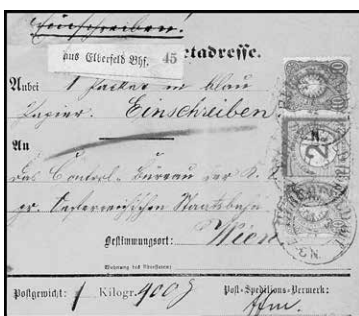 Einschreiben!
aus Elberfeld Bhf. 45
etadresse.
Anbei 1 Packet in blau
Papier. Einschreiben.
An
das Control-Bureau der K. K.
pr. Oesterreichischen Staatsbahn
Bestimmungsort: Wien
Wohnung des Adressaten:
Postgewicht: 1 Kilogr. 400 g
Post-Speditions-Vermerk:
50
2